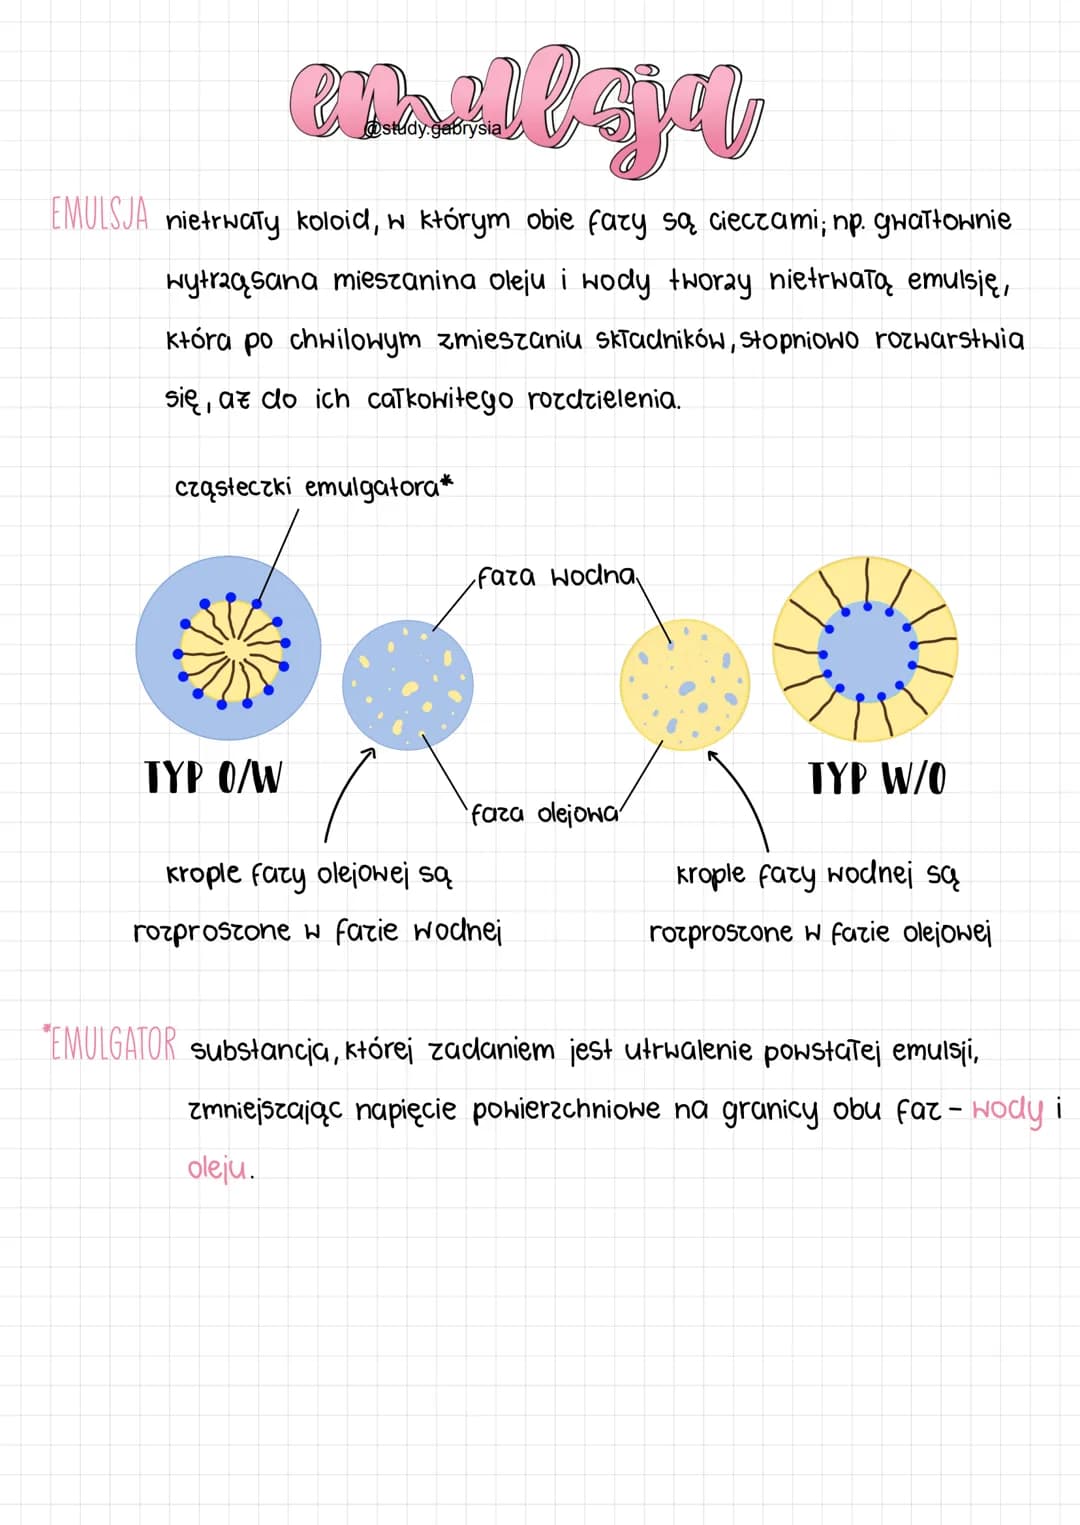 emulsja
@study.gabrysia
EMULSJA nietrwały koloid, w którym obie fazy są cieczami; np. gwałtownie
wytrząsana mieszanina oleju i wody tworzy nietrwałą emulsję,
która po chwilowym zmieszaniu składników, stopniowo rozwarstwia
się, aż do ich całkowitego rozdzielenia.
cząsteczki emulgatora*
faza wodna
TYP O/W
TYP W/O
faza olejowa
krople fazy olejowej są
rozproszone w fazie wodnej
krople fazy wodnej są
rozproszone w fazie olejowej
*EMULGATOR substancja, której zadaniem jest utrwalenie powstałej emulsji,
zmniejszając napięcie powierzchniowe na granicy obu faz - wody i
oleju.